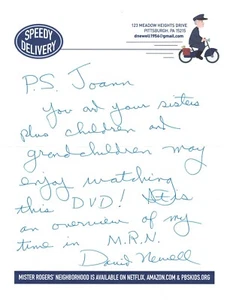 SPEEDY
DELIVERY
123 MEADOW HEIGHTS DRIVE
PITTSBURGH, PA 15215
dnewell1956@gmail.com
P.S. Joann
You and your sisters
plus children and
grandchildren may
enjoy watching
this DVD! It is
an overview of my
time in M.R.N.
David Newell
MISTER ROGERS' NEIGHBORHOOD IS AVAILABLE ON NETFLIX, AMAZON.COM & PBSKIDS.ORG